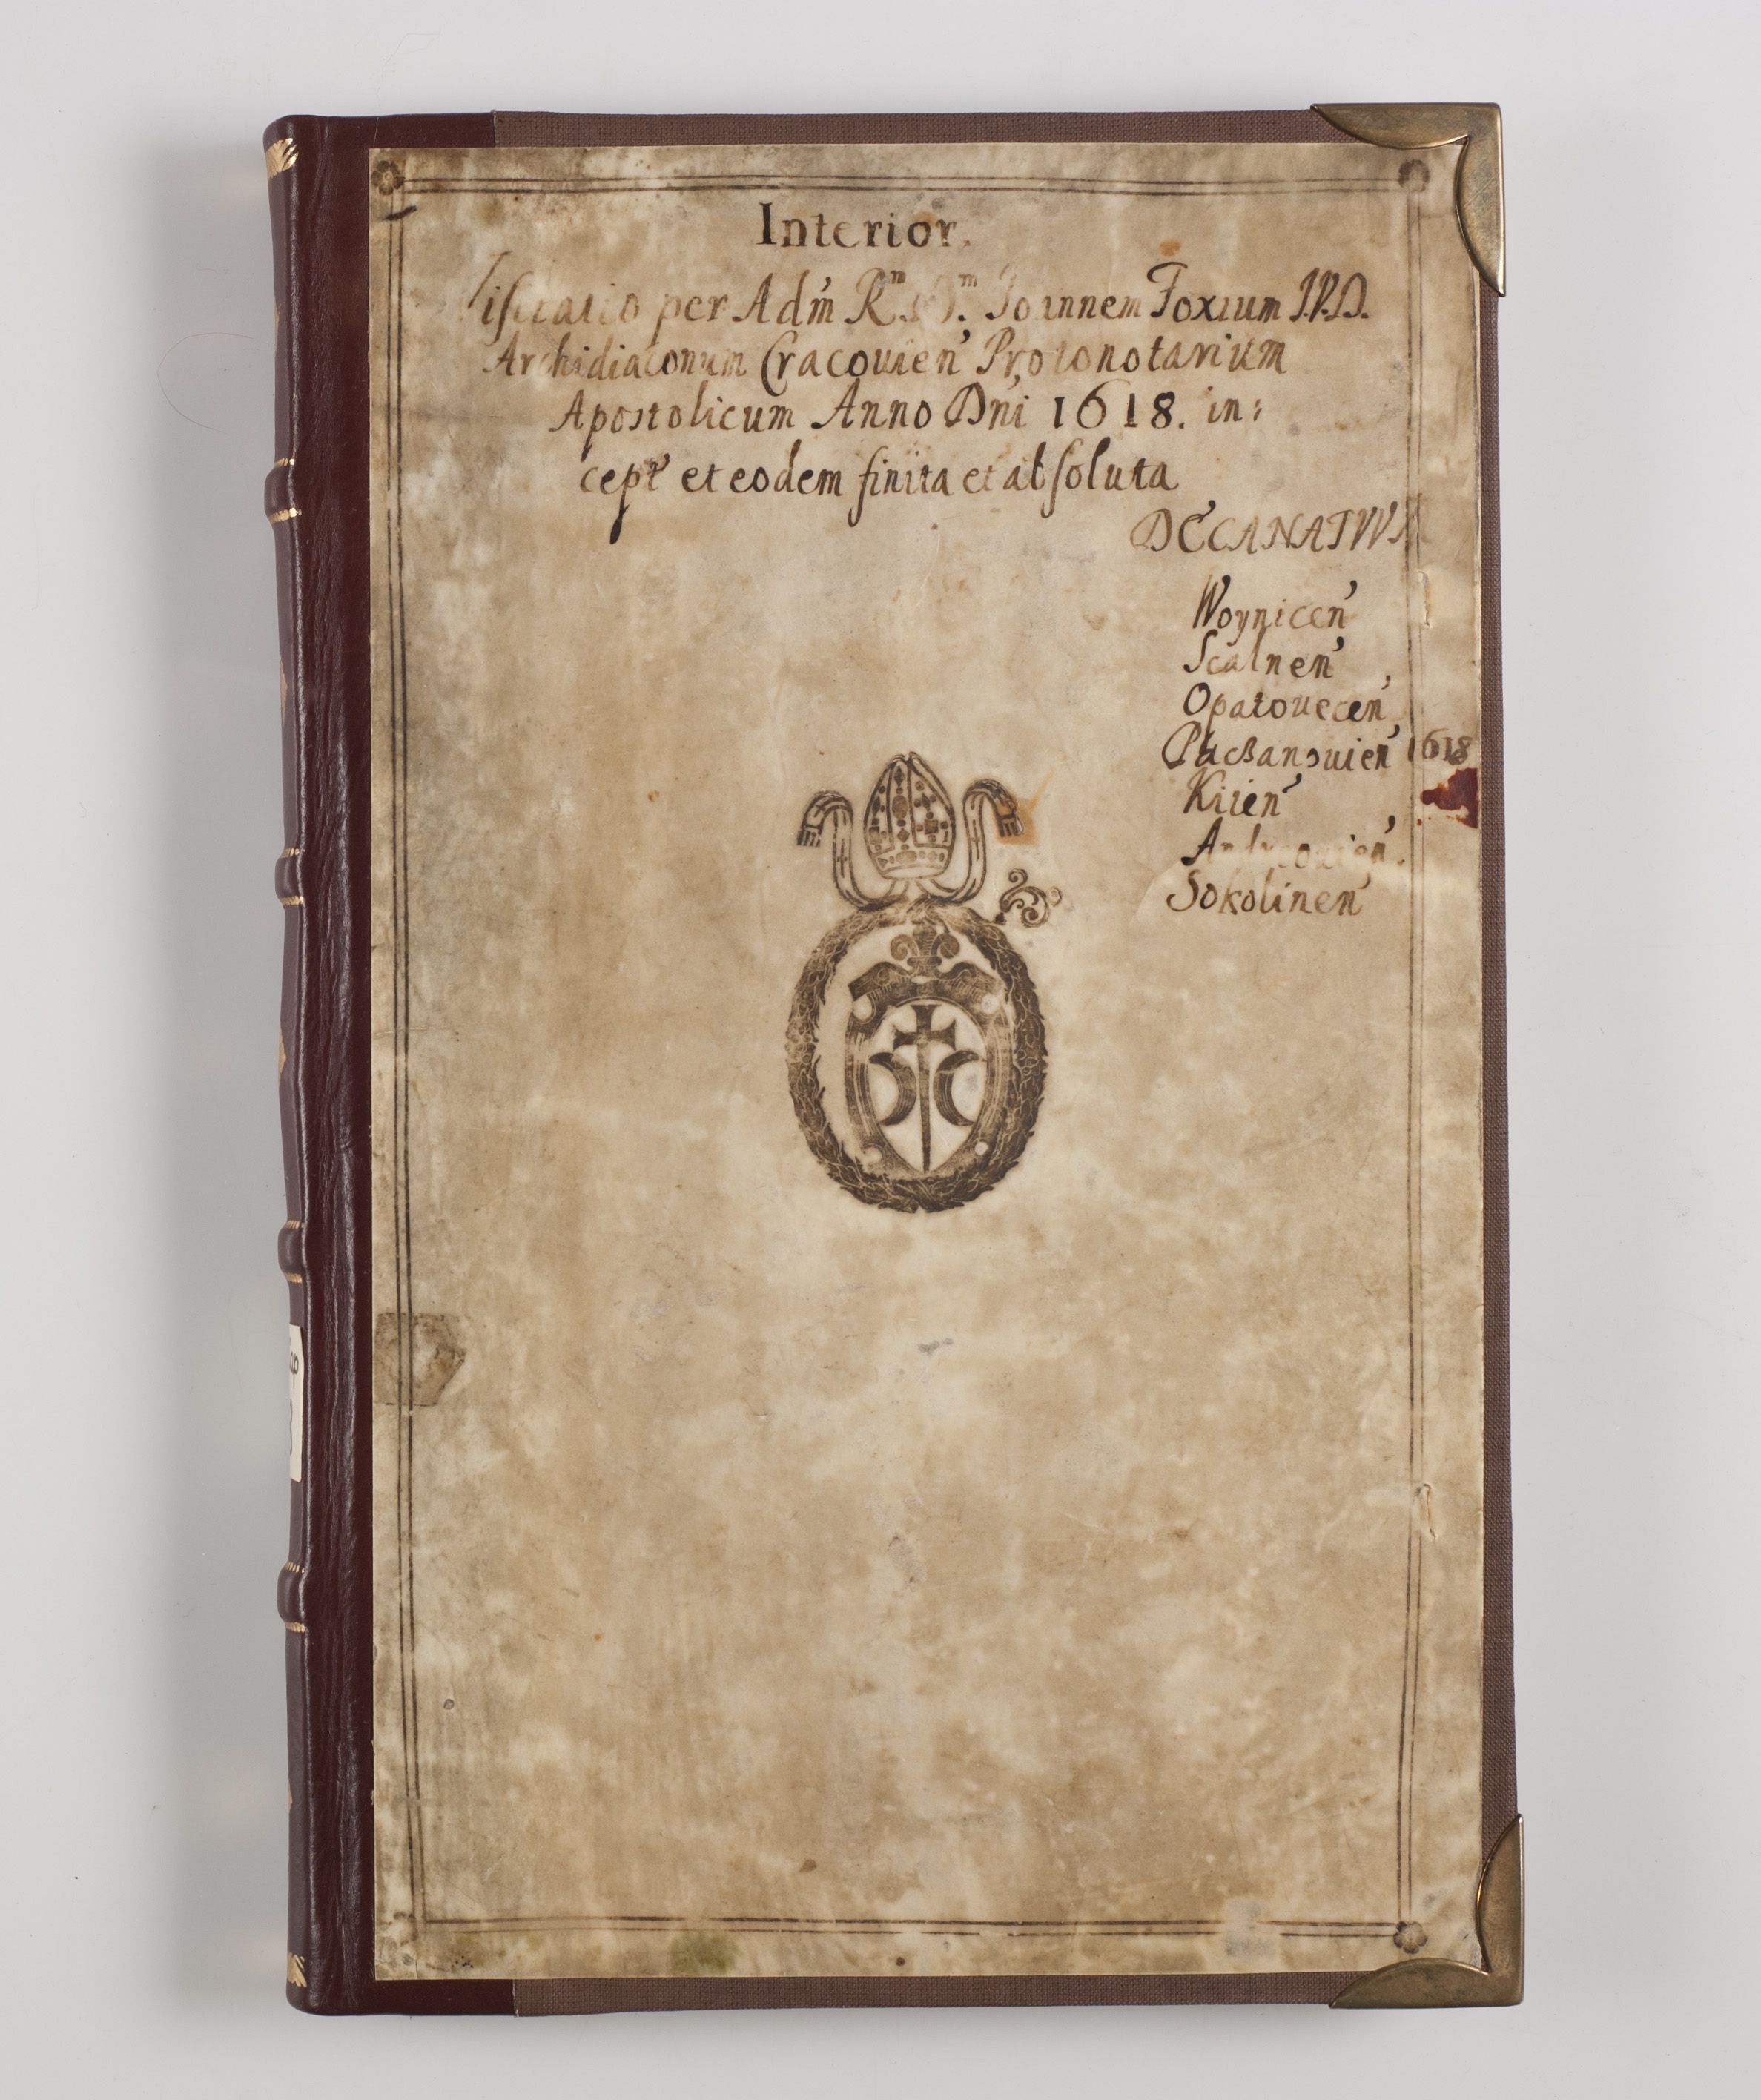 Interior.
Visitatio per Adm̃ Rᵐ Dᵐ. Joannem Foxium I.V.D.
Archidiaconum Cracovien̓ Protonotarium
Apostolicum Anno Dñi 1618. in:
cept̓ et eodem finita et absoluta
DECANATWM
Woynicen̓
Scalnen̓
Opatovecen̓
Pacßanovien̓ 1618
Kiien̓
Andreovien̓.
Sokolinen̓